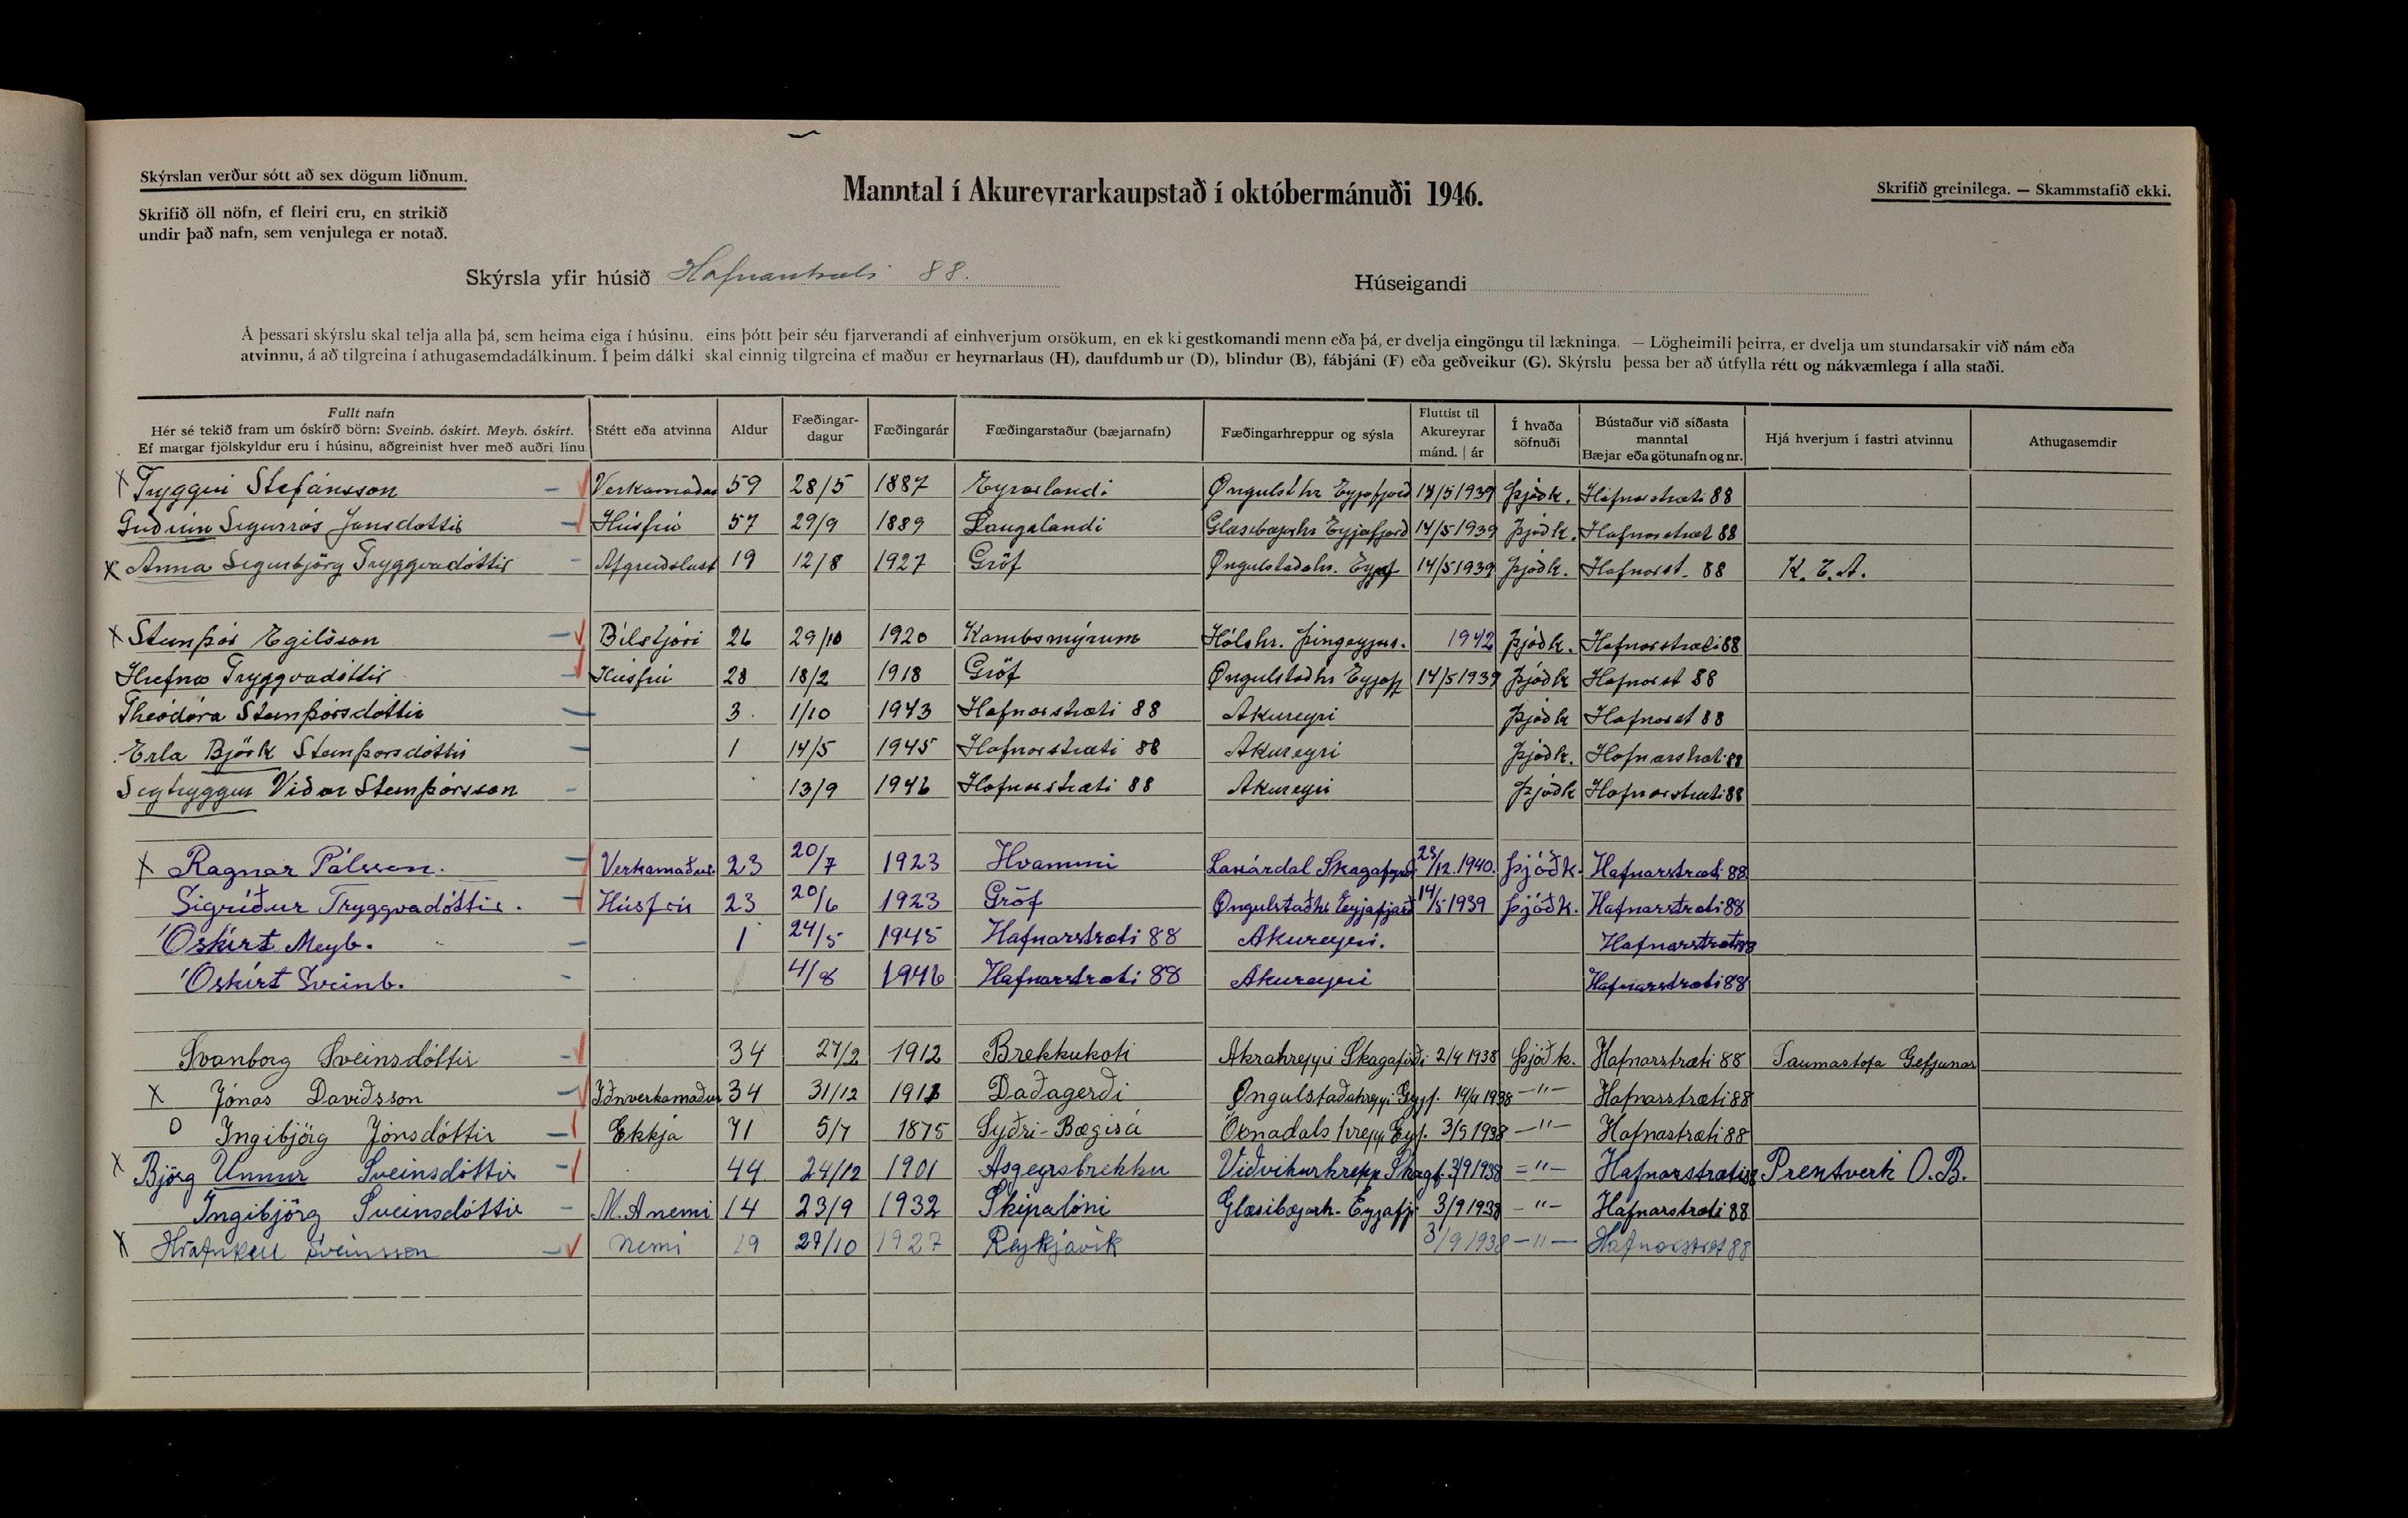 Skýrslan verður sótt að sex dögum liðnum.
Skrifið öll nöfn, ef fleiri eru, en strikið
undir það nafn, sem venjulega er notað.
Manntal í Akureyrarkaupstað í októbermánuði 1946.
Skrifið greinilega. — Skammstafið ekki.
Skýrsla yfir húsið Hafnarstræti 88.
Húseigandi
Á þessari skýrslu skal telja alla þá, sem heima eiga í húsinu, eins þótt þeir séu fjarverandi af einhverjum orsökum, en ekki gestkomandi menn eða þá, er dvelja eingöngu til lækninga. — Lögheimili þeirra, er dvelja um stundarsakir við nám eða
atvinnu, á að tilgreina í athugasemdadálkinum. Í þeim dálki skal einnig tilgreina ef maður er heyrnarlaus (H), daufdumbur (D), blindur (B), fábjáni (F) eða geðveikur (G). Skýrslu þessa ber að útfylla rétt og nákvæmlega í alla staði.
Fullt nafn
Hér sé tekið fram um óskírð börn: Sveinb. óskírt. Meyb. óskírt.
Ef margar fjölskyldur eru í húsinu, aðgreinist hver með auðri línu
Stétt eða atvinna
Aldur
Fæðingar-
dagur
Fæðingarár
Fæðingarstaður (bæjarnafn)
Fæðingarhreppur og sýsla
Fluttist til
Akureyrar
mánd. | ár
Í hvaða
söfnuði
Bústaður við síðasta
manntal
Bæjar eða götunafn og nr.
Hjá hverjum í fastri atvinnu
Athugasemdir
x Tryggvi Stefánsson Verkamaður 59 28/5 1887 Eyrarlandi Öngulst hr Eyjafjord 14/5 1939 Þjóðk. Hafnarstræti 88
Guðrún Sigurrós Jónsdóttir Húsfrú 57 29/9 1889 Laugalandi Glæsibæjarhr Eyjafjord 14/5 1939 Þjóðk. Hafnarstræt 88
x Anna Sigurbjörg Tryggvadóttir Afgreiðslust 19 12/8 1927 Gröf Öngulstaðahr. Eyjaf 14/5 1939 Þjóðk. Hafnarst. 88 K. E. A.
x Steinþór Egilsson Bílstjóri 26 29/10 1920 Kambsmýrum Hálshr. Þingeyjars. 1942 Þjóðk. Hafnarstræti 88
Hrefna Tryggvadóttir Húsfrú 28 18/2 1918 Gröf Öngulstaðhr Eyjafj 14/5 1939 Þjóðk Hafnarst 88
Theódóra Steinþórsdóttir 3 1/10 1943 Hafnarstræti 88 Akureyri Þjóðk Hafnarst 88
Erla Björk Steinþorsdóttir 1 14/5 1945 Hafnarstræti 88 Akureyri Þjóðk. Hafnarstræti 88
Sigtryggur Viðar Steinþórsson 13/9 1946 Hafnarstræti 88 Akureyri Þjóðk Hafnarstræti 88
x Ragnar Pálsson. Verkamaður. 23 20/7 1923 Hvammi Laxárdal Skagafjord. 28/12.1940. Þjóðk. Hafnarstræti 88
Sigríður Tryggvadóttir. Húsfrú 23 20/6 1923 Gröf Öngulstaðhr Eyjafjarð 14/5 1939 Þjóðk. Hafnarstræti 88
Óskírt Meyb. 1 24/5 1945 Hafnarstræti 88 Akureyri. Hafnarstræti 88
Óskírt Sveinb. 4/8 1946 Hafnarstræti 88 Akureyri Hafnarstræti 88
Svanborg Sveinsdóttir 34 27/2 1912 Brekkukoti Akrahreppi Skagafirði 2/4 1938 Þjóðk. Hafnarstræti 88 Saumastofa Gefjunar
x Jónas Davíðsson Iðnverkamaður 34 31/12 1911 Daðagerði Öngulstaðahreppi Eyjf. 14/4 1938 —"— Hafnarstræti 88
o Ingibjörg Jónsdóttir Ekkja 71 5/7 1875 Syðri-Bægisá Öxnadalshrepp Eyf. 3/9 1938 —"— Hafnastræti 88
x Björg Unnur Sveinsdóttir 44 24/12 1901 Ásgeirsbrekku Viðvíkurhrepp Skagf. 3/9 1938 ="— Hafnarstræti 88 Prentverk O. B.
Ingibjörg Sveinsdóttir M. A nemi 14 23/9 1932 Skipalóni Glæsibæjarh. Eyjafj 3/9 1938 —"— Hafnarstræti 88
x Hrafnkell Sveinsson Nemi 19 27/10 1927 Reykjavík 3/9 1938 —"— Hafnarstræt 88